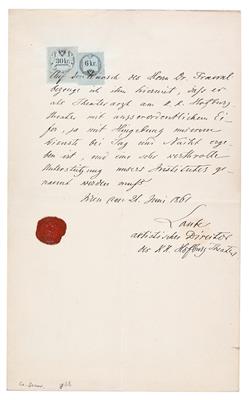 30 kr. 6 kr.
Auf den Wunsch des Herrn Dr.
bezeuge ich ihm hiermit, daß er
als Theaterarzt am k. k. Hofburg-
theater mit ausserordentlichem Ei-
fer, ja mit Hingebung unserem
Dienste bei Tag und Nacht erge-
ben ist, und eine sehr werthvolle
Unterstützung unsers Institutes ge-
nannt werden muß
Wien den 21. Juni 1861
Laube
artistischer Director
des k.k. Hofburgtheaters